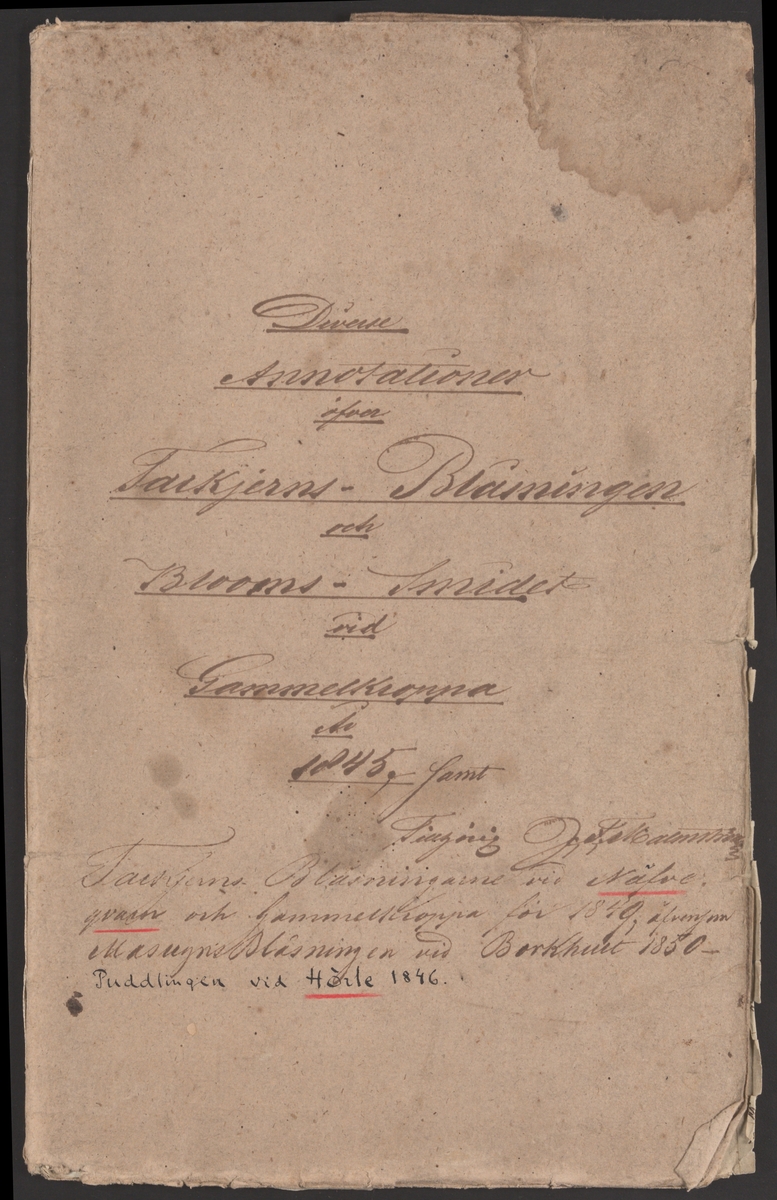 Diverse
Annotationer
öfver
Tackjerns- Blåsningen
och
Blooms- Smidet
vid
Gammelkroppa
År
1845, samt
Tillhörig
Tackjerns Blåsningarne vid Nälve-
qvarn och Gammelkroppa för 1849, älvensom
Masugns Blåsningen vid Borkhult 1850-
Puddlingen vid Hörle 1846.